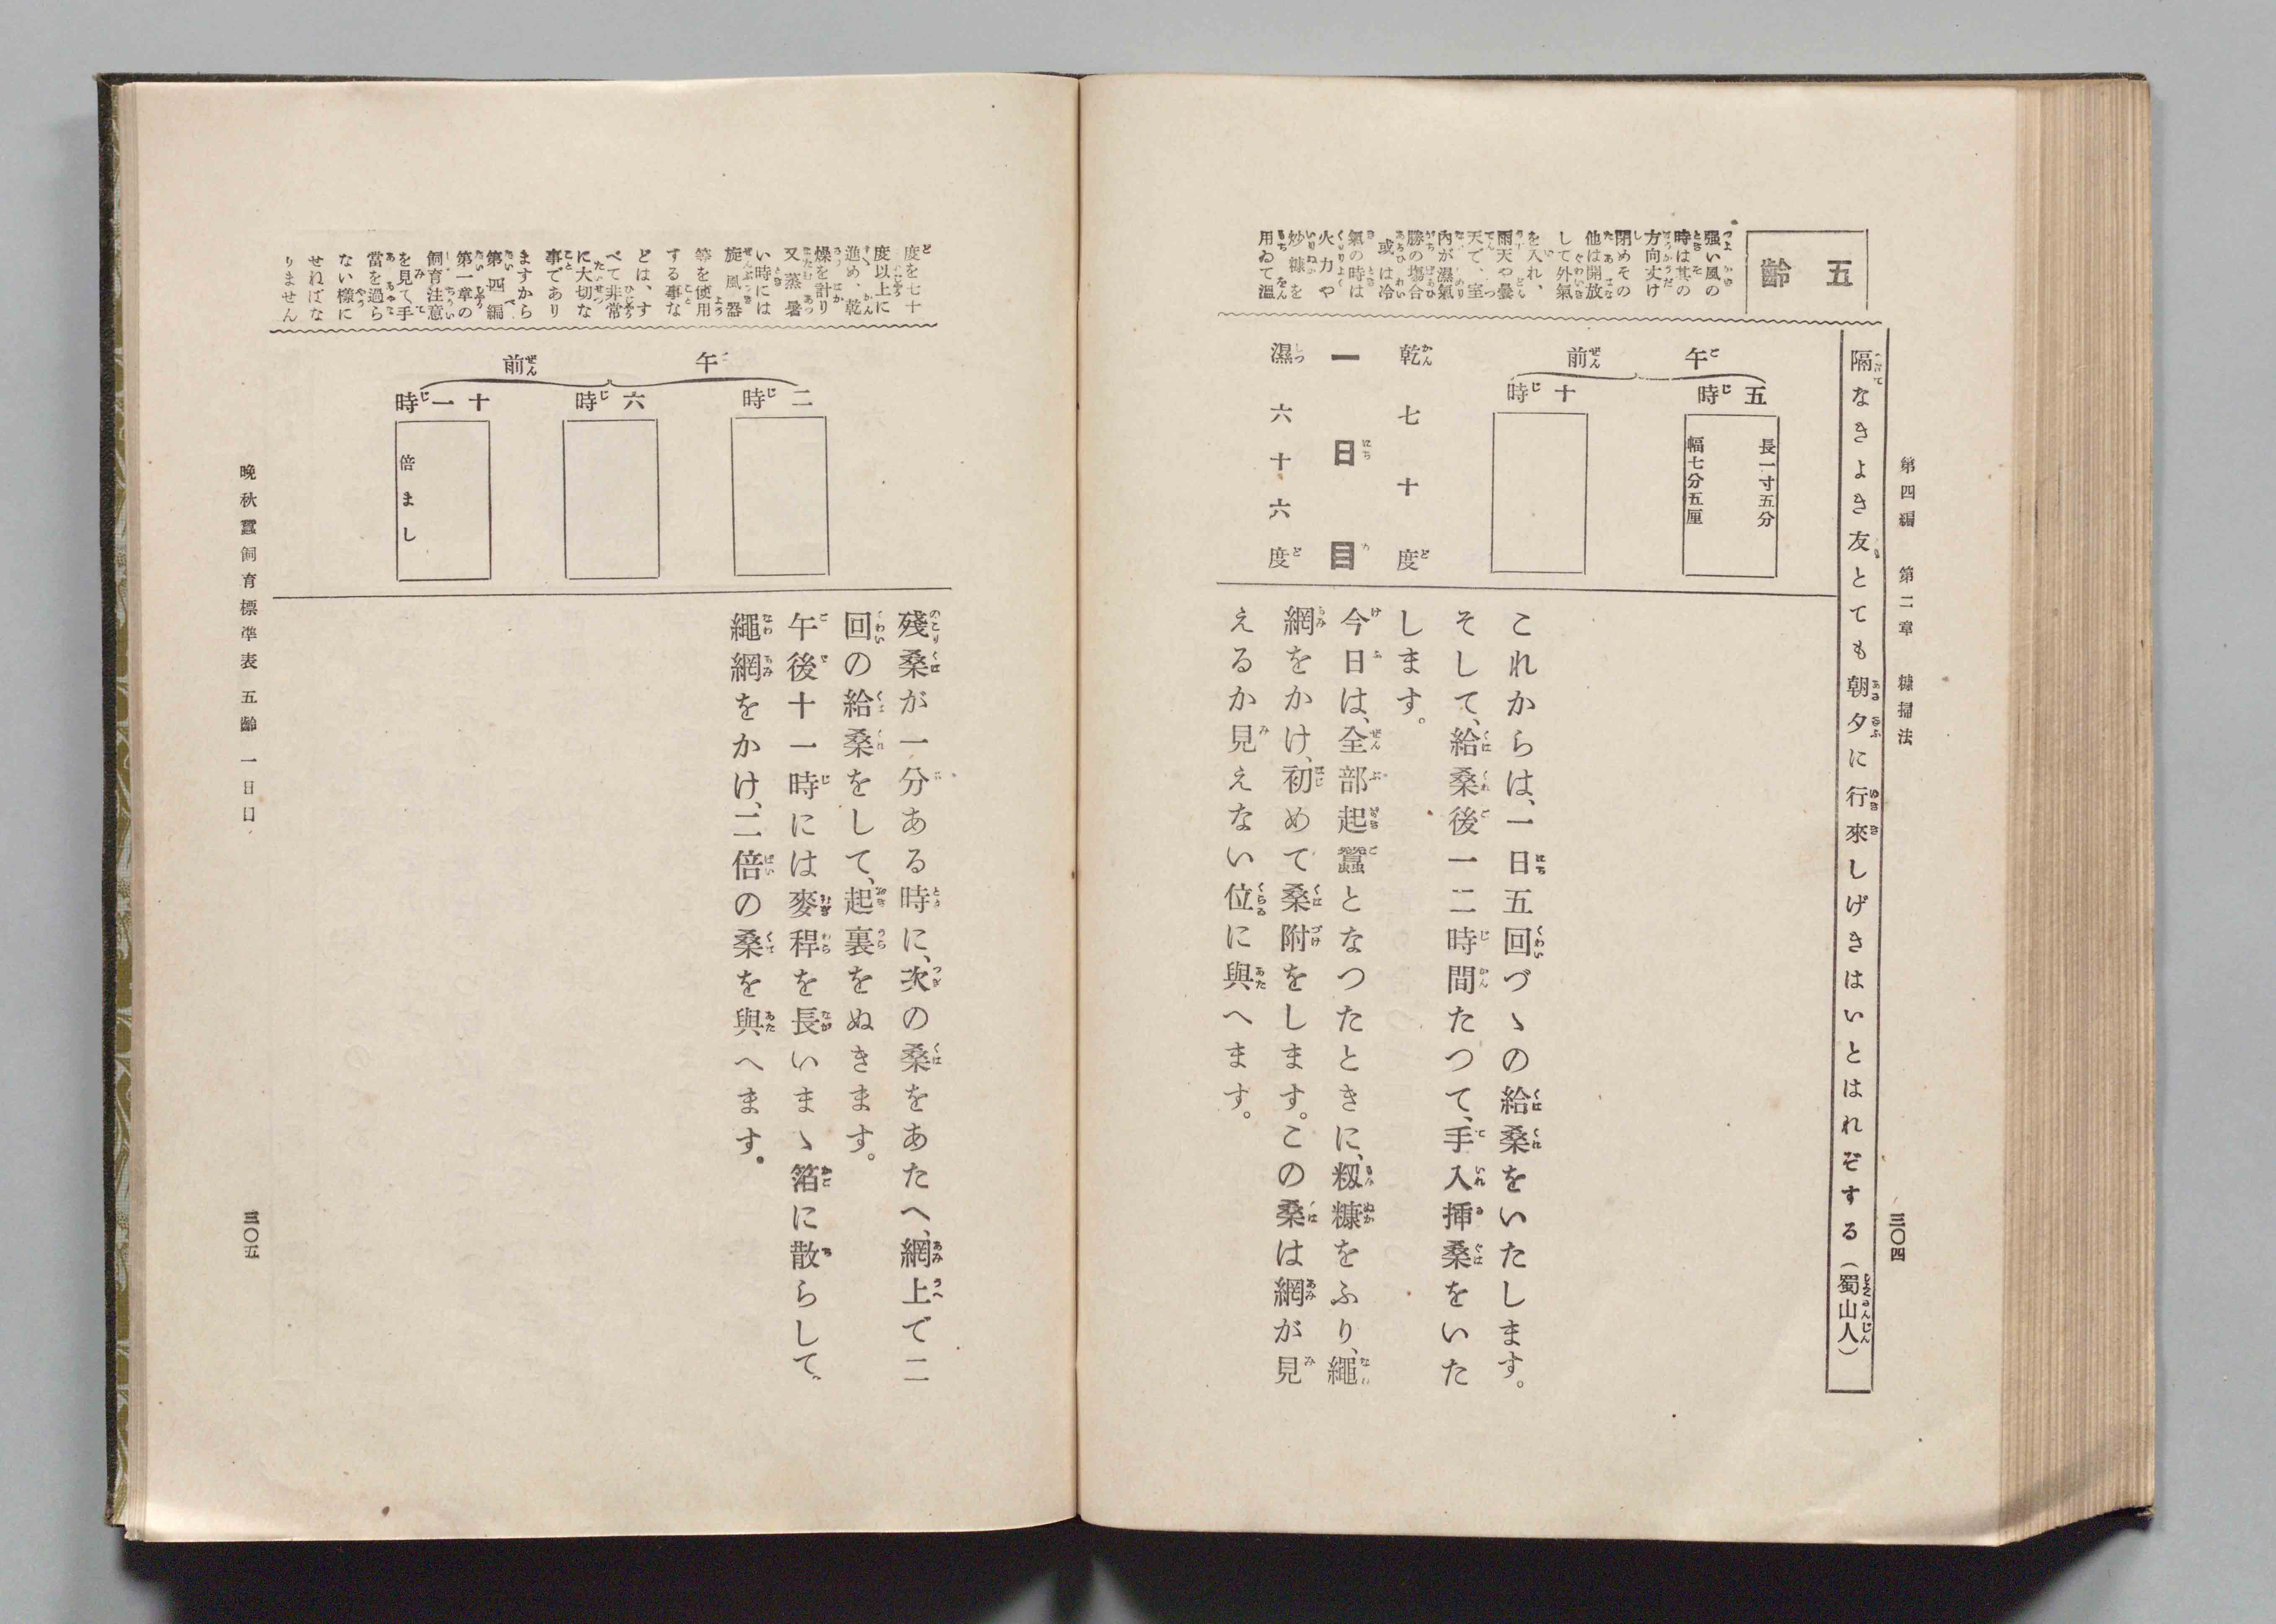 第四編　第二章　糠掃法
三〇四
隔なきよき友とても朝夕に行來しげきはいとはれぞする（蜀山人）
五齡
强い風の
時は其の
方向丈け
閉めその
他は開放
して外氣
を入れ、
雨天や曇
天で、室
內が濕氣
勝の場合
或は冷
氣の時は
火力や
炒糠を
用ゐて溫
午前
五時
長一寸五分
幅七分五厘
十時
乾七十度
一日目
濕六十六度
これからは、一日五回づゝの給桑をいたします。
そして、給桑後一二時間たつて、手入挿桑をいた
します。
今日は、全部起蠶となつたときに、籾糠をふり、繩
網をかけ、初めて桑附をします。この桑は網が見
えるか見えない位に與へます。
度を七十
度以上に
進め、乾
燥を計り
又蒸暑
い時には
旋風器
等を使用
する事な
どは、す
べて非常
に大切な
事であり
ますから
第四編
第一章の
飼育注意
を見て手
當を過ら
ない樣に
せねばな
りません
午前
二時
六時
十一時
倍まし
殘桑が一分ある時に、次の桑をあたへ、網上で二
回の給桑をして、起裏をぬきます。
午後十一時には麥稈を長いまゝ箔に散らして、
繩網をかけ、二倍の桑を與へます。
晚秋蠶飼育標準表　五齡　一日目
三〇五